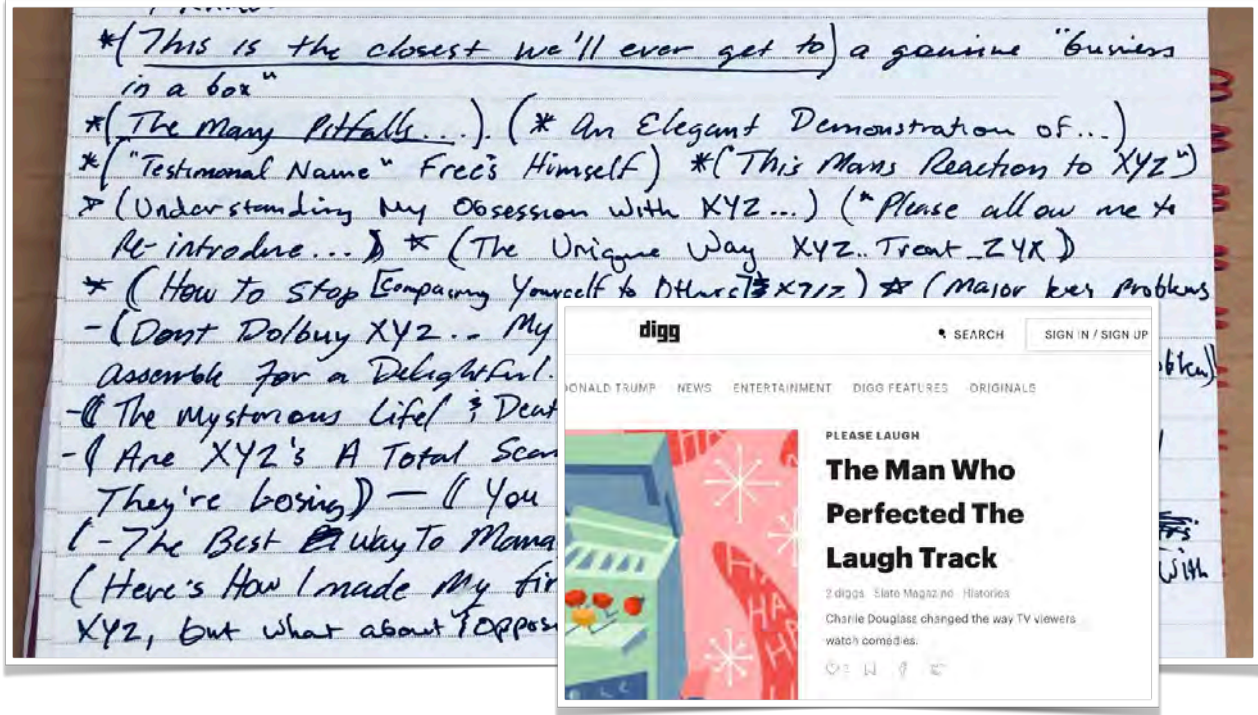 *(This is the closest we'll ever get to) a genuine "business
in a box"
*(The Many Pitfalls...). (* An Elegant Demonstration of...)
*("Testimonal Name" Free's Himself) *(This Mans Reaction to XYZ")
(Understanding My Obsession with XYZ...) ("Please allow me to
Re-introduce...) * (The Unique Way XYZ.. Treat ZYX)
* (How To Stop [Comparing Yourself to Others] XYZ) * (Major key problems
- (Dont Do/buy XYZ... My
assemble for a Delightful.
- (The Mysterious Life( &
- (Are XYZ's A Total
They're losing) — (( You
(-The Best way To
(Here's How I made My
with
XYZ, but what about
digg
SEARCH
SIGN IN / SIGN UP
DONALD TRUMP NEWS ENTERTAINMENT DIGG FEATURES ORIGINALS
PLEASE LAUGH
The Man Who
Perfected The
Laugh Track
2 diggs Slate Magazine Histories
Charlie Douglass changed the way TV viewers
watch comedies.
HA
HA